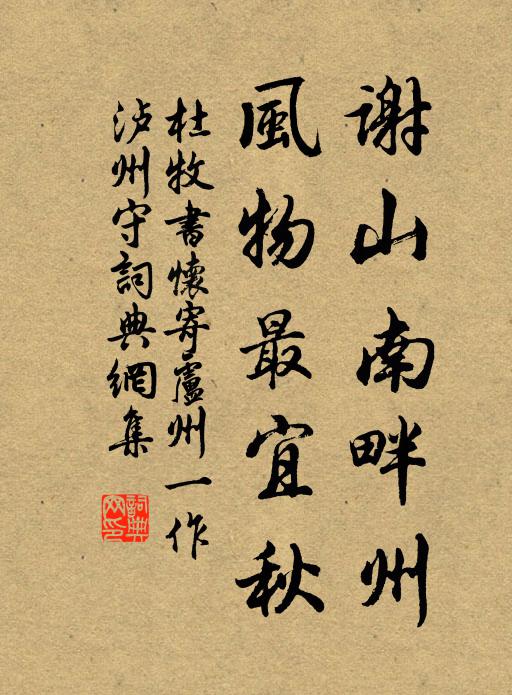 謝山南畔州
風物最宜秋
杜牧書懷寄廬州一作
泸州守詞典網集
詞典網印